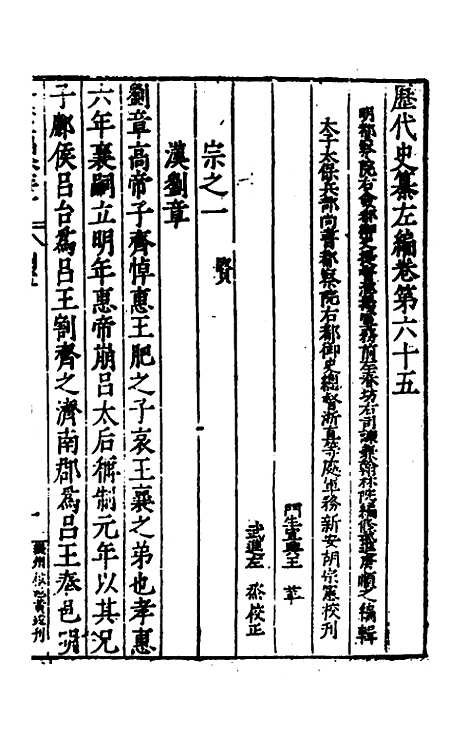 歷代史纂左編卷第六十五
明都察院右僉都御史提督淮揚軍務前左春坊右司諫兼翰林院編修武進唐順之編輯
太子太保兵部尚書都察院右都御史總督浙直等處軍務新安胡宗憲校刊
門生宜興王革
武進左烝校正
宗之一 賢
漢劉章
劉章高帝子齊悼惠王肥之子哀王襄之弟也孝惠
六年襄嗣立明年惠帝崩呂太后稱制元年以其兄
子酈侯呂台爲呂王割齊之濟南郡爲呂王奉邑明